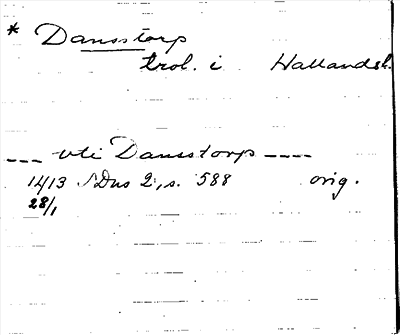 * Dansstorp
trol. i Hallandsk.
--- vti Dansstorp ----
1413 SDns 2, s. 588 orig.
28/1